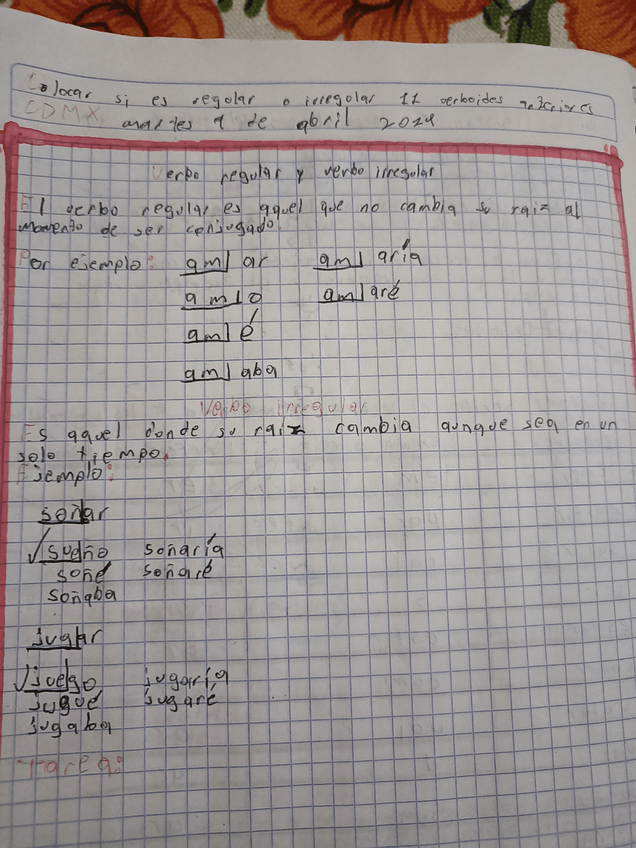 Colocar si es regular o irregular 11 verboides anteriores
CDMX martes 9 de abril 2024
Verbo regular y verbo irregular
El verbo regular es aquel que no cambia su raiz al
momento de ser conjugado.
Por ejemplo: am|ar am|aría
am|o am|aré
am|é
am|aba
Verbo irregular
Es aquel donde su raiz cambia aunque sea en un
solo tiempo.
Ejemplo:
soñar
√sueño soñaría
soñé soñaré
soñaba
jugar
√juego jugaría
jugué jugaré
jugaba
Tarea: